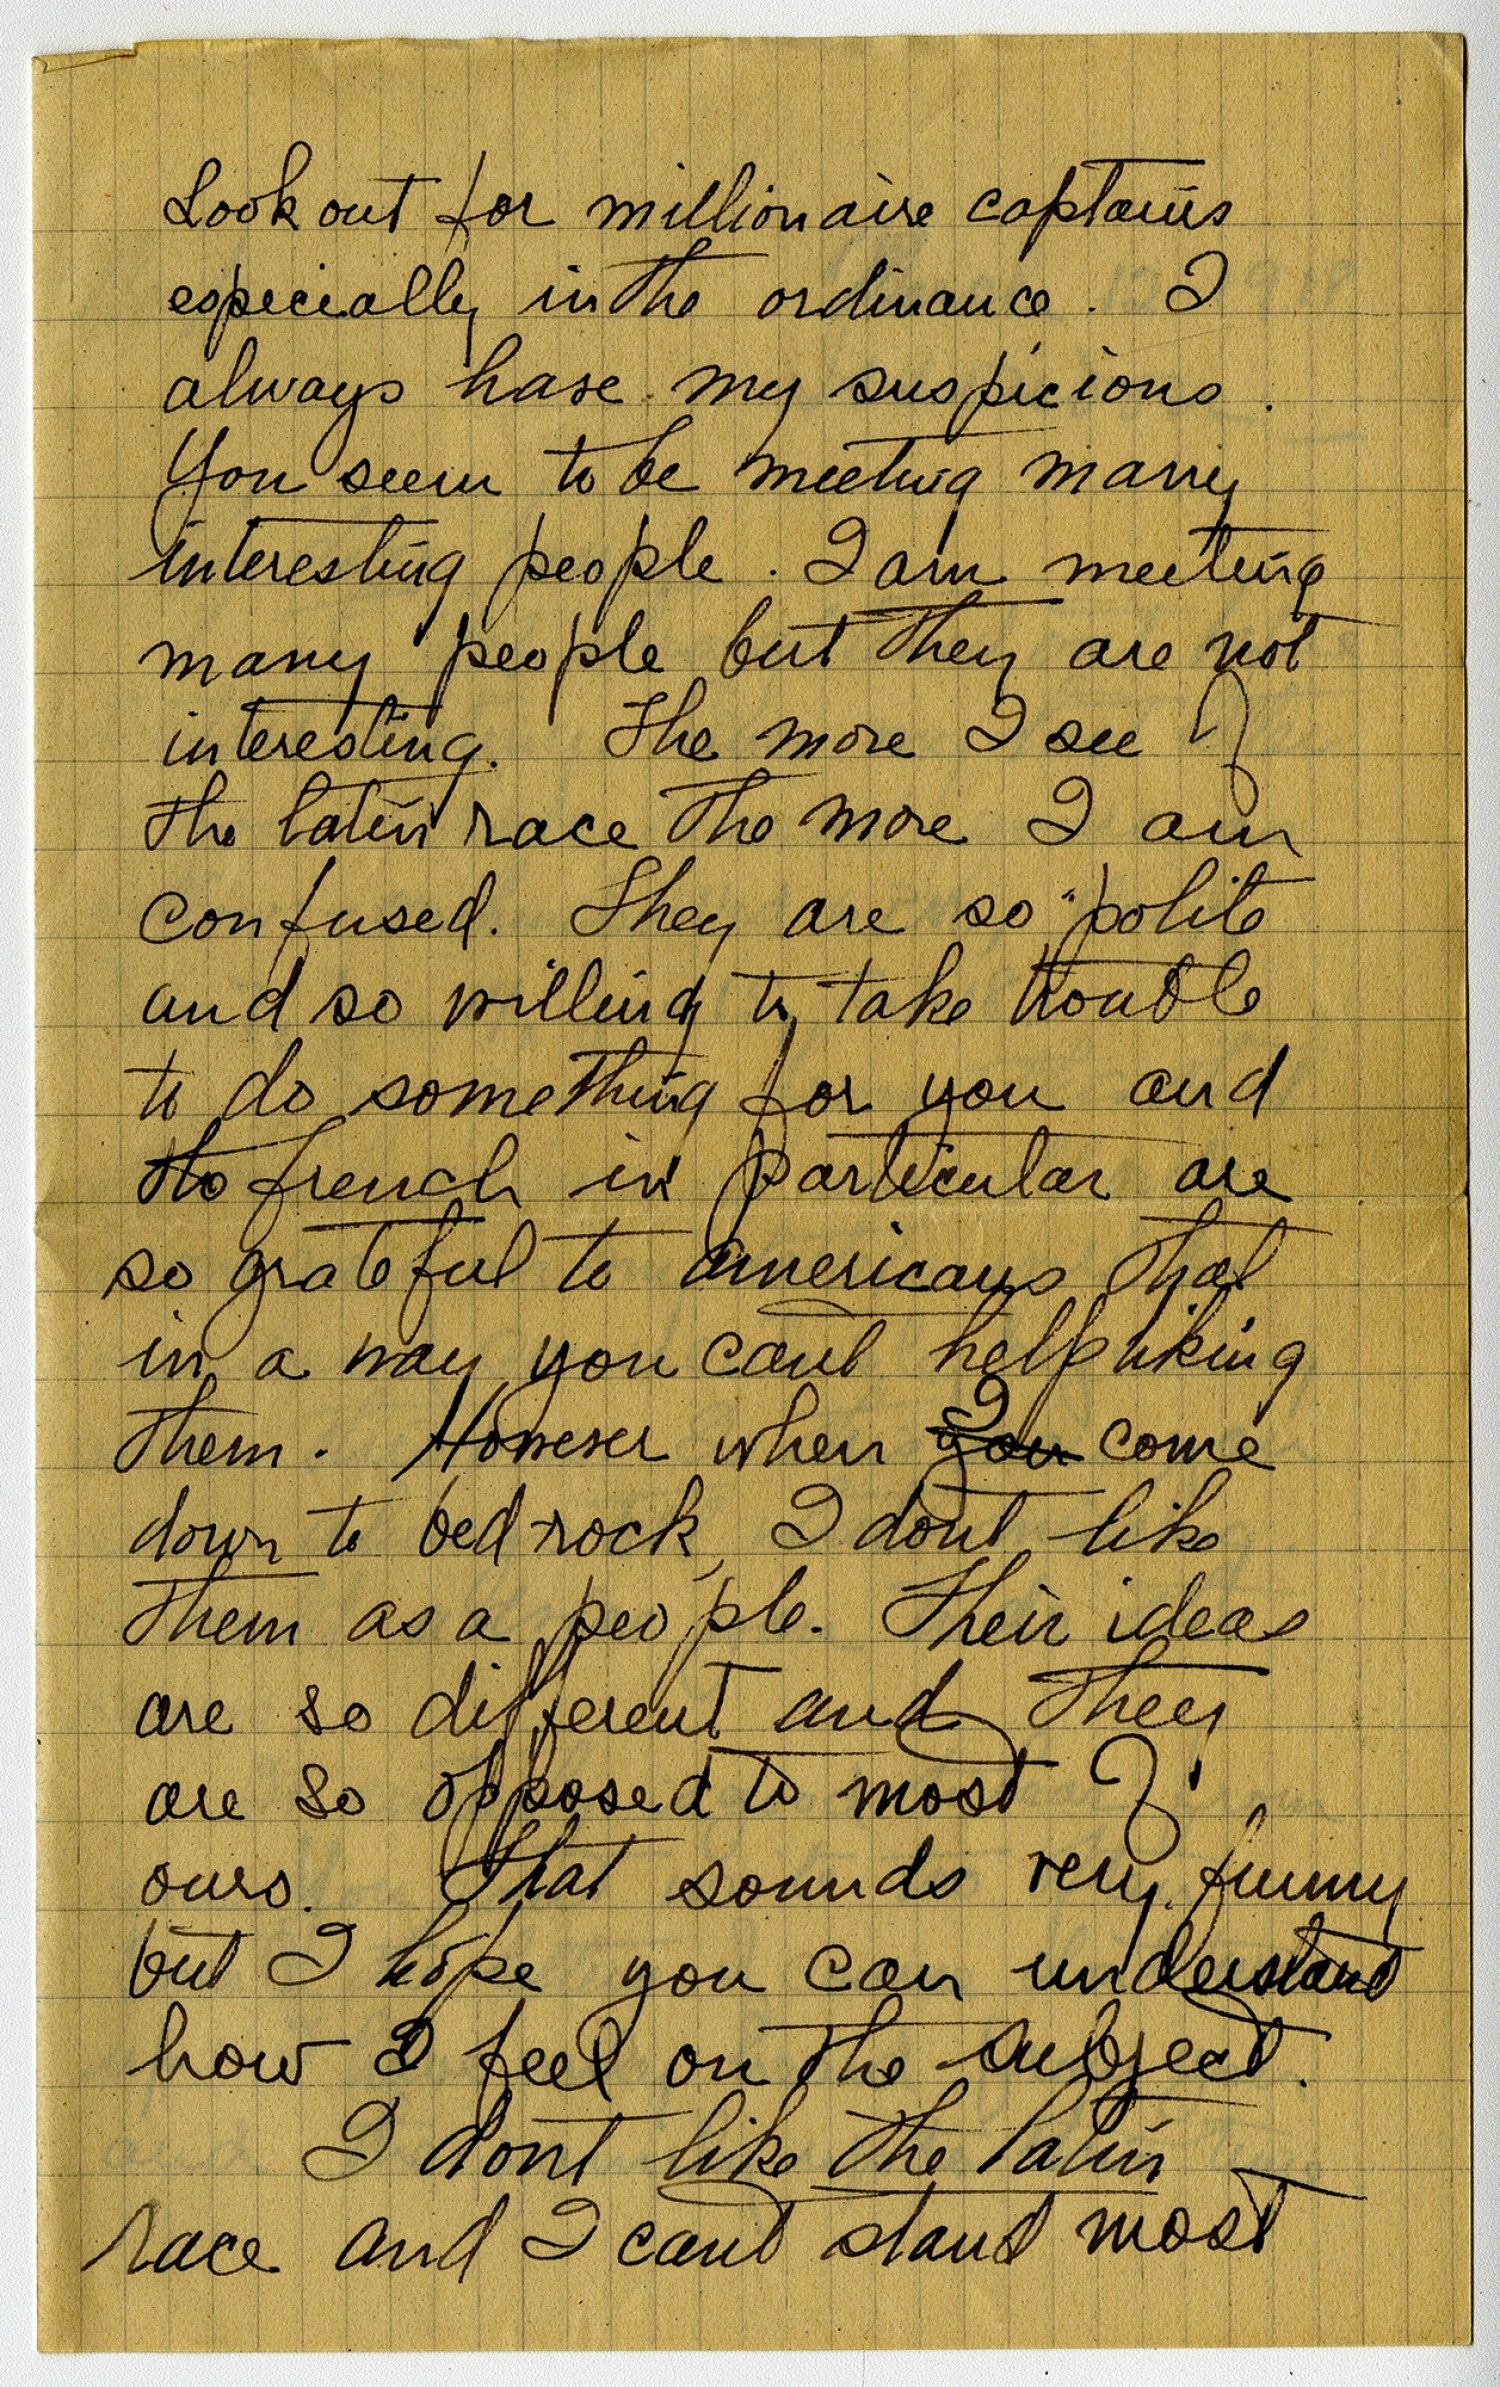 Look out for millionaire captains
especially in the ordinance. I
always have my suspicions.
You seem to be meeting many
interesting people. I am meeting
many people but they are not
interesting. The more I see of
the latin race the more I am
confused. They are so polite
and so willing to take trouble
to do something for you and
the french in particular are
so grateful to americans that
in a way you cant help liking
them. However when I you come
down to bed-rock, I dont like
them as a people. Their ideas
are so different and they
are so opposed to most of
ours. That sounds very funny
but I hope you can understand
how I feel on the subject.
I dont like the latin
race and I cant stand most